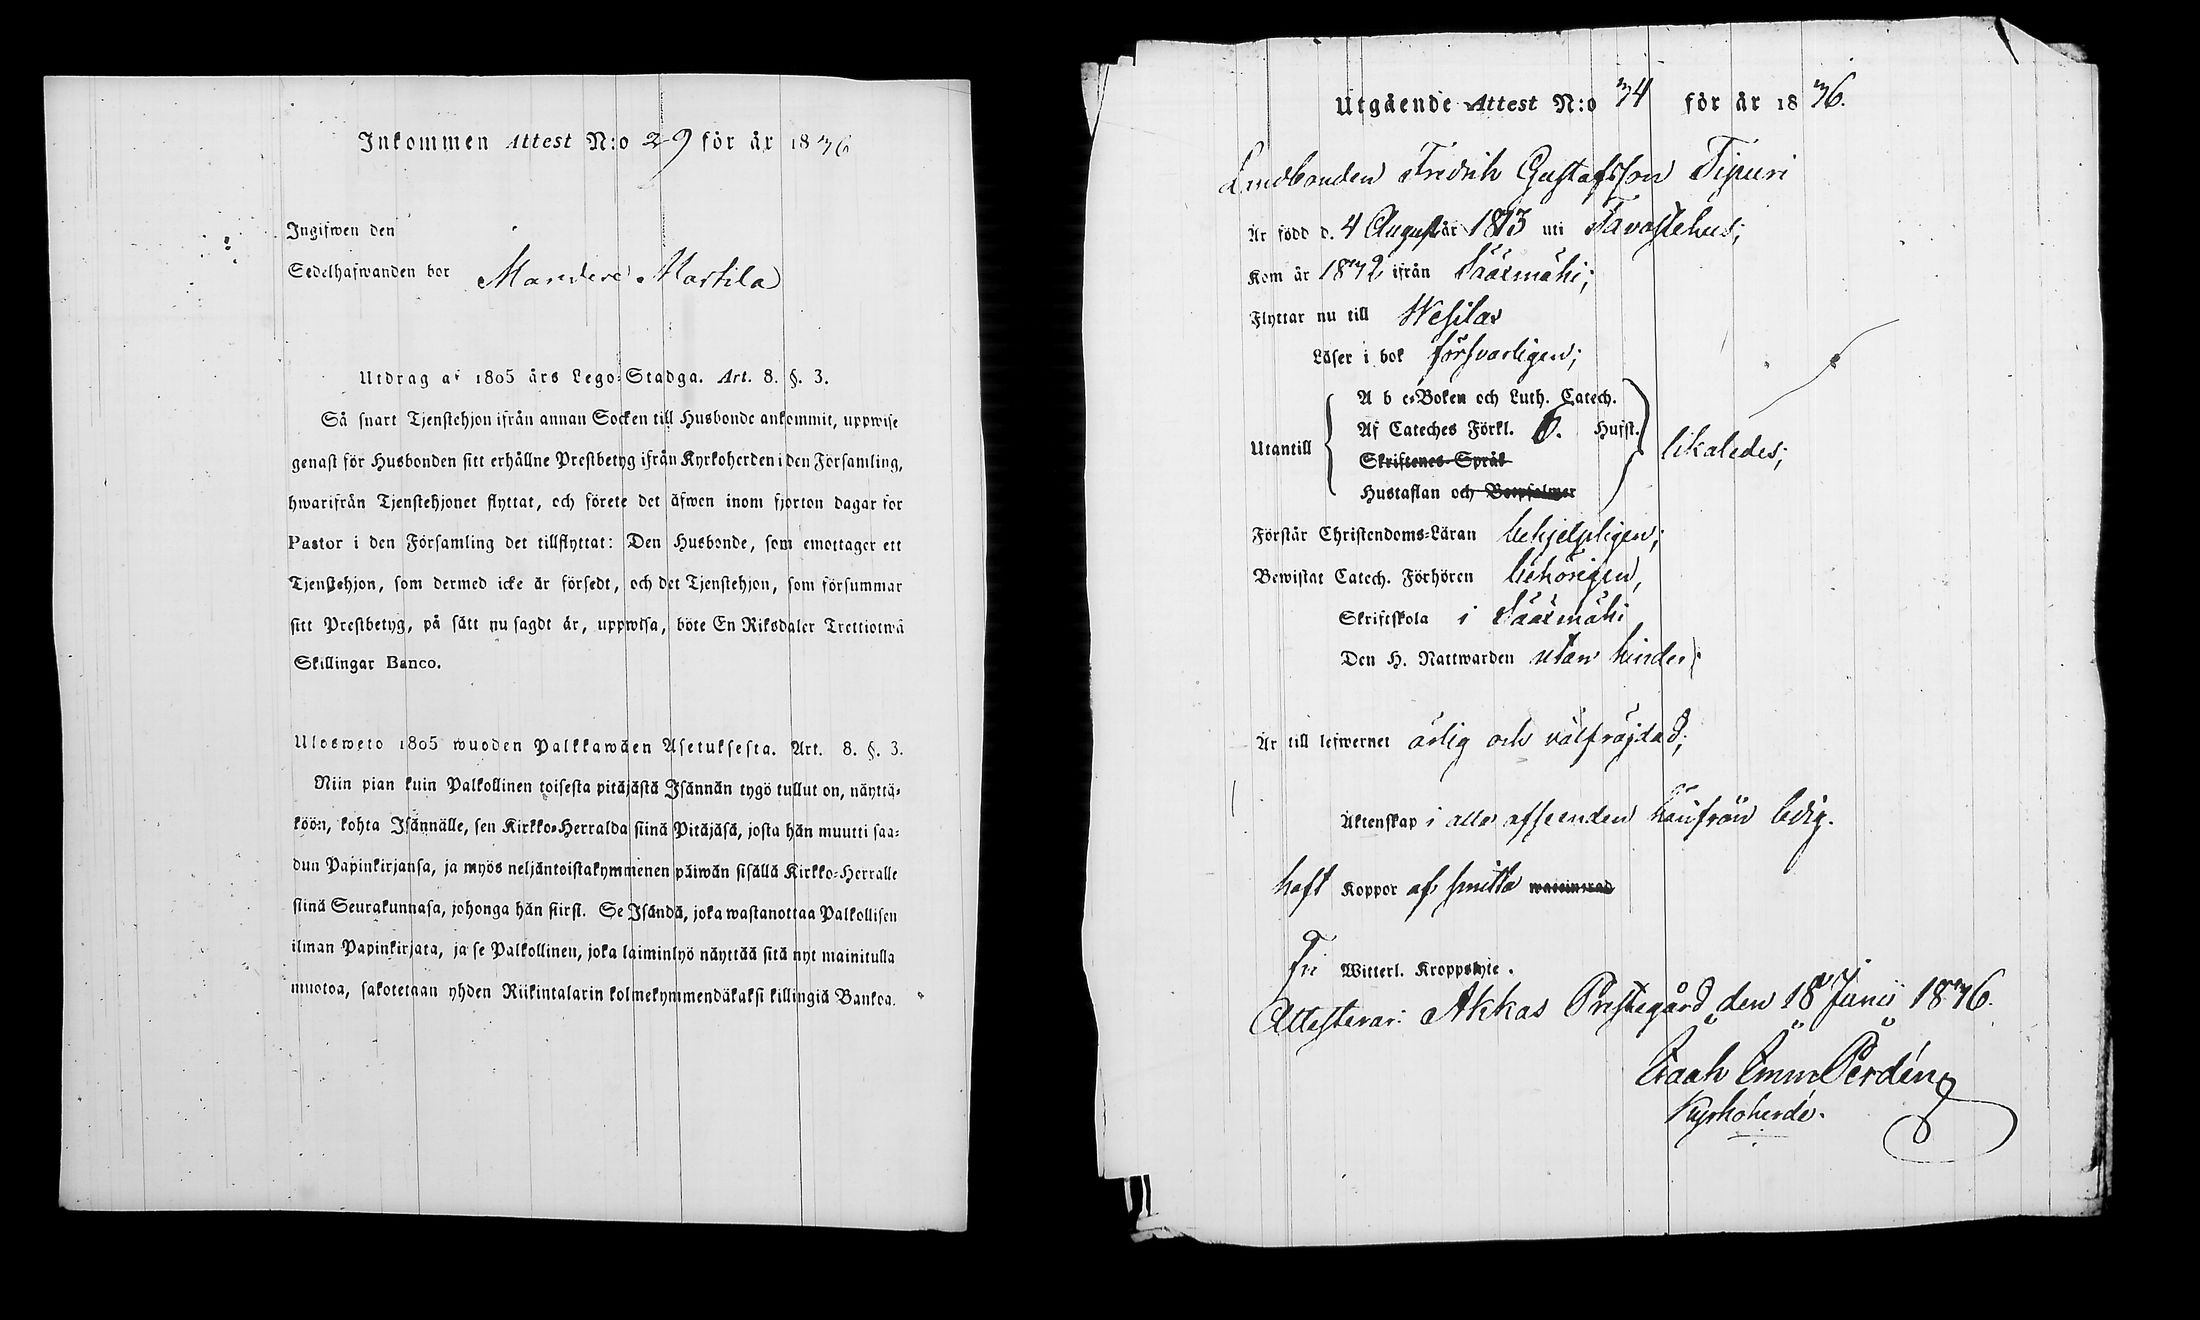 Inkommen Attest N:o 29 för år 1846
Ingifwen den
Sedelhafwanden bor Mandere Marttila
Utdrag af 1805 års Lego-Stadga. Art. 8. §. 3.
Så snart Tjenstehjon ifrån annan Socken till Husbonde ankommit, uppwise
genast för Husbonden sitt erhållne Prestbetyg ifrån Kyrkoherden i den Församling,
hwarifrån Tjenstehjonet flyttat, och förete det äfwen inom fjorton dagar för
Pastor i den Församling det tillflyttat: Den Husbonde, som emottager ett
Tjenstehjon, som dermed icke är försedt, och det Tjenstehjon, som försummar
sitt Prestbetyg, på sätt nu sagdt är, uppwisa, böte En Riksdaler Trettiotwå
Skillingar Banco.
Ulosweto 1805 wuoden Palkkawäen Asetuksesta. Art. 8. §. 3.
Niin pian kuin Palkollinen toisesta pitäjästä Isännän tygö tullut on, näyttä-
köön, kohta Isännälle, sen Kirkko-Herralda siinä Pitäjäsä, josta hän muutti saa-
dun Papinkirjansa, ja myös neljäntoistakymmenen päiwän sisällä Kirkko-Herralle
siinä Seurakunnasa, johonga hän siirsi. Se Isändä, joka wastanottaa Palkollisen
ilman Papinkirjata, ja se Palkollinen, joka laiminlyö näyttää sitä nyt mainitulla
muotoa, sakotetaan yhden Riikintalarin kolmekymmendäkaksi killingiä Bankoa.
Utgående Attest N:o 34 för år 1846.
Landbonden Fredrik Gustafsson Tipuri
Är född d. 4 August år 1813 uti Tavastehus;
Kom år 1842 ifrån Sääxmäki;
Flyttar nu till Wesilax
Läser i bok försvarligen;
A b c-Boken och Luth. Catech.
Af Cateches Förkl. 6. Hufst.
Utantill likaledes;
Skriftenes Språk
Hustaflan och Botpsalmer
Förstår Christendoms-Läran behjelpligen;
Bewistat Catech. Förhören behörigen,
Skriftskola i Sääxmäki
Den H. Nattwarden utan hinder;
Är till lefwernet ärlig och välfräjdad;
Äktenskap i alla afseenden häruifrån ledig.
haft Koppor af smitta
Fri Witterl. Kroppslyte.
Attesterar: Akkas Prestegård den 18 Junii 1846.
Isaak Emm Perdén
Kyrkoherde.